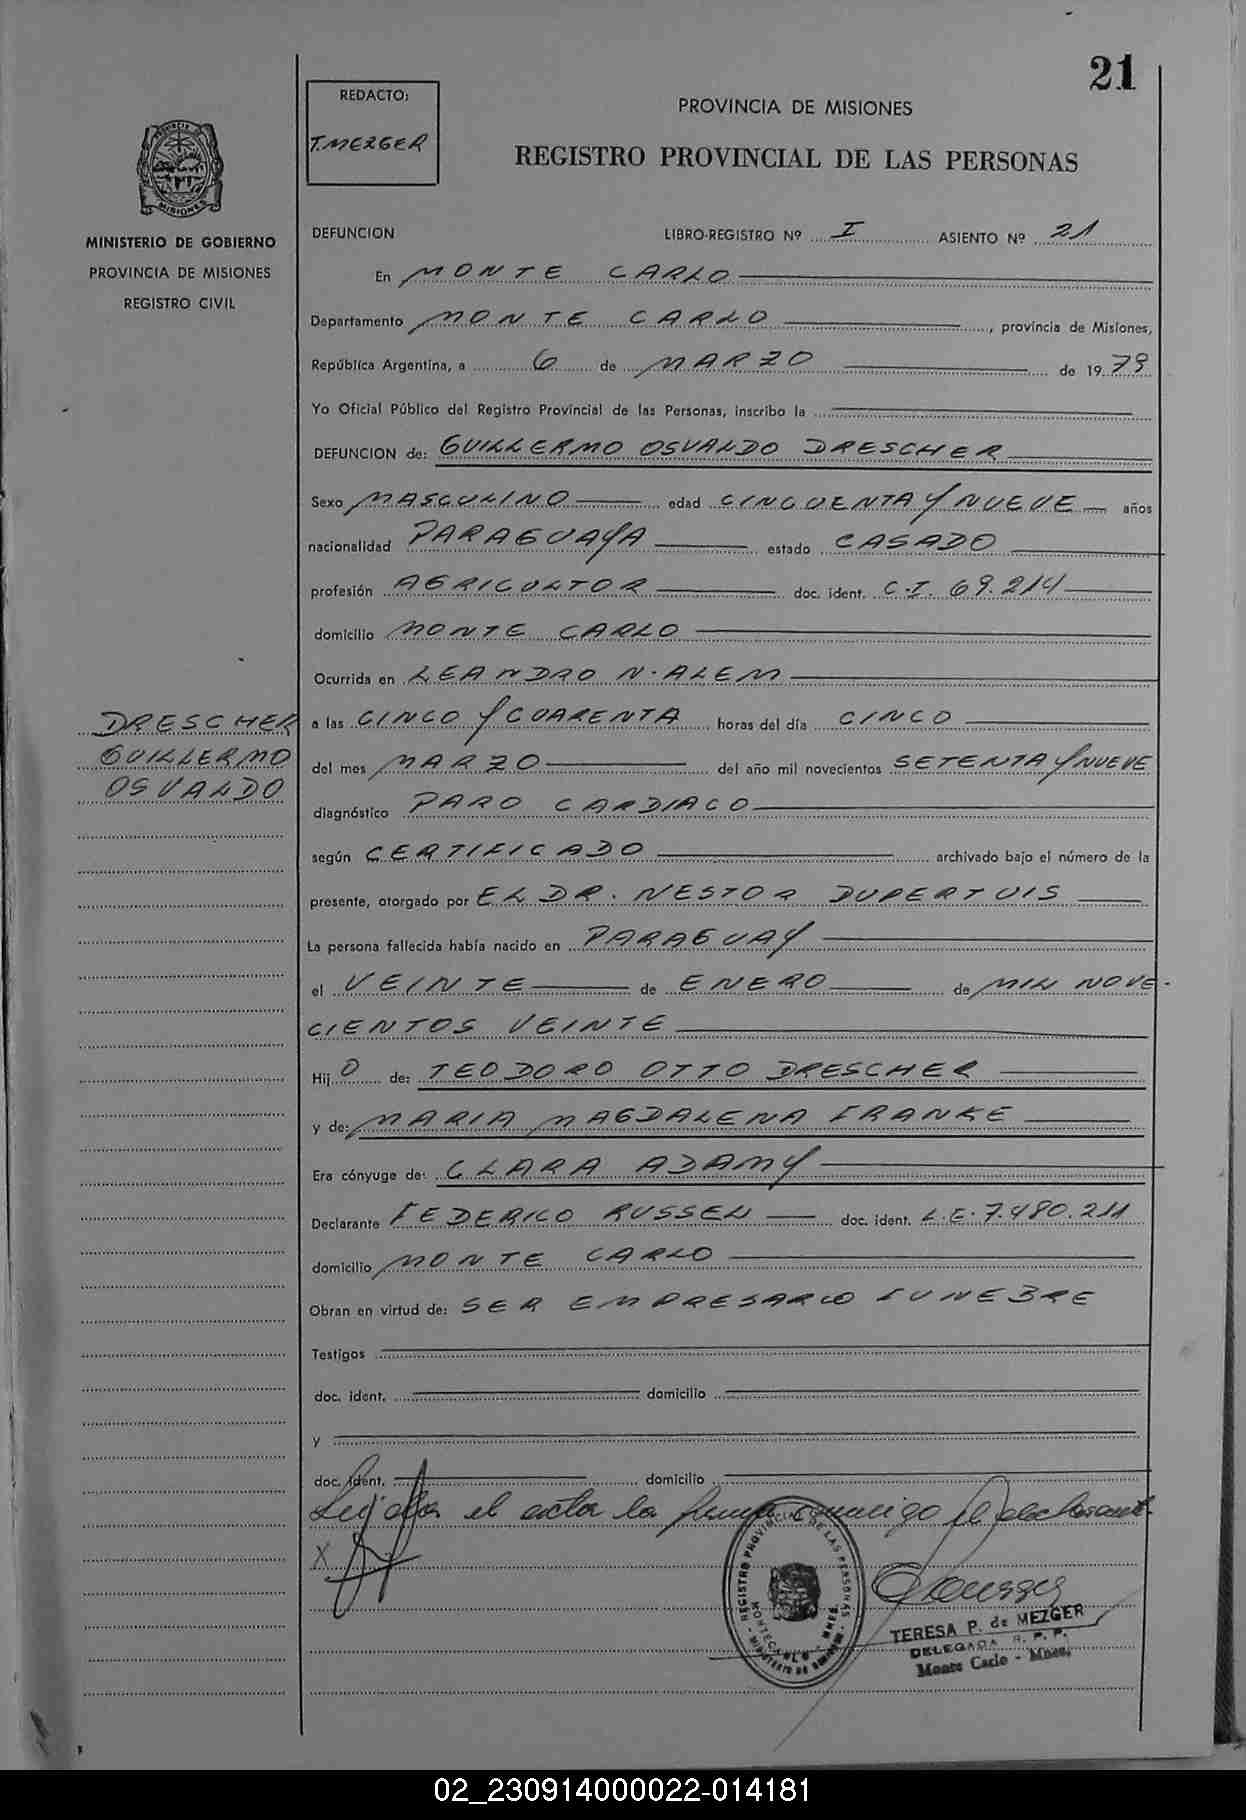 21
REDACTO:
T. MEZGER
PROVINCIA DE MISIONES
REGISTRO PROVINCIAL DE LAS PERSONAS
PROVINCIA DE
MISIONES
MINISTERIO DE GOBIERNO
PROVINCIA DE MISIONES
REGISTRO CIVIL
DEFUNCION LIBRO-REGISTRO Nº I ASIENTO Nº 21
En MONTE CARLO
Departamento MONTE CARLO, provincia de Misiones,
República Argentina, a 6 de MARZO de 1979
Yo Oficial Público del Registro Provincial de las Personas, inscribo la
DEFUNCION de: GUILLERMO OSVALDO DRESCHER
Sexo MASCULINO edad CINCUENTA Y NUEVE años
nacionalidad PARAGUAYA estado CASADO
profesión AGRICULTOR doc. ident. C.I. 69.214
domicilio MONTE CARLO
Ocurrida en LEANDRO N. ALEM
DRESCHER
GUILLERMO
OSVALDO
a las CINCO Y CUARENTA horas del día CINCO
del mes MARZO del año mil novecientos SETENTA Y NUEVE
diagnóstico PARO CARDIACO
según CERTIFICADO archivado bajo el número de la
presente, otorgado por EL DR. NESTOR DUPERTUIS
La persona fallecida había nacido en PARAGUAY
el VEINTE de ENERO de MIL NOVE-
CIENTOS VEINTE
Hij O de: TEODORO OTTO DRESCHER
y de: MARIA MAGDALENA FRANKE
Era cónyuge de: CLARA ADAMY
Declarante FEDERICO RUSSEL doc. ident. L.E. 7.480.211
domicilio MONTE CARLO
Obran en virtud de: SER EMPRESARIO FUNEBRE
Testigos
doc. ident. domicilio
y
doc. ident. domicilio
Leída el acta la firma conmigo el declarante
X
REGISTRO PROVINCIAL DE LAS PERSONAS
MONTECARLO - MNES.
MINISTERIO DE GOBIERNO
TERESA P. de MEZGER
DELEGADA R. P. P.
Monte Carlo - Mnes.
02_230914000022-014181